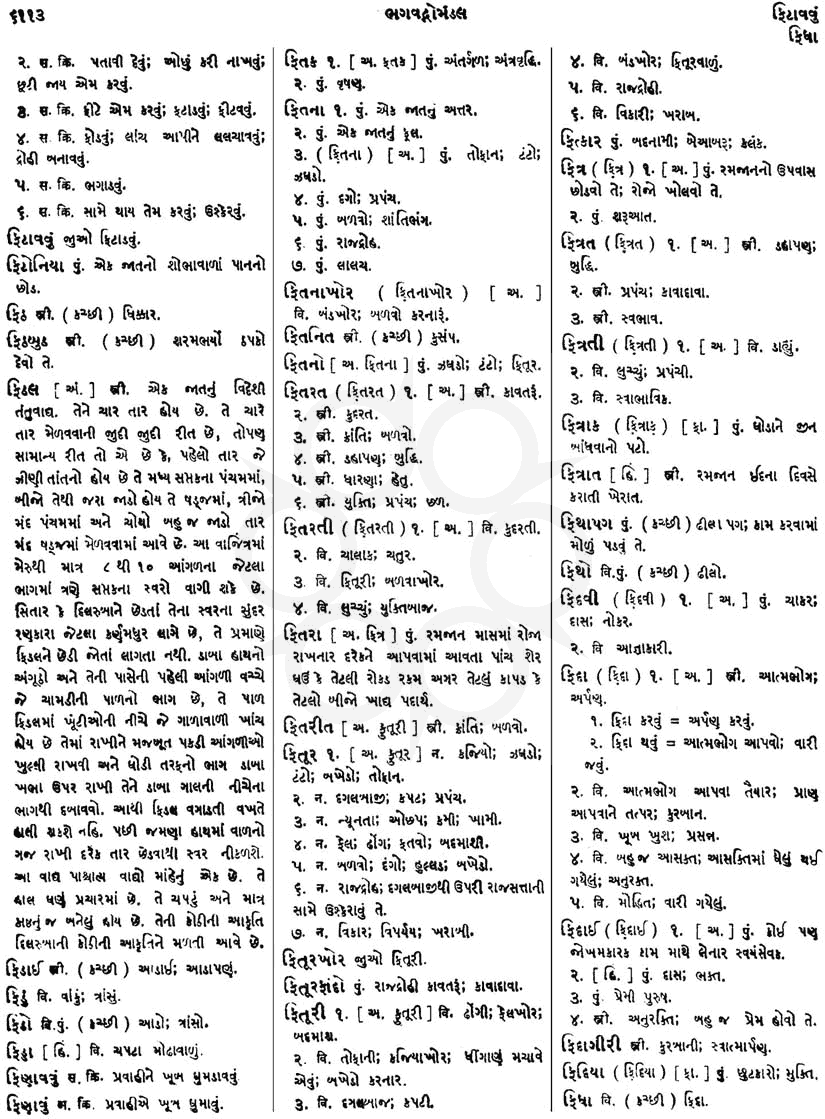 ૬૧૧૩
ભગવદ્ગોમંડલ
ફિટાવવું
ફિધા
૨. સ. ક્રિ. પતાવી દેવું; ઓછું કરી નાખવું;
છૂટી જાય એમ કરવું.
૩. સ. ક્રિ. ફીટે એમ કરવું; ફટાડવું; ફીટવવું.
૪. સ. ક્રિ. ફોડવું; લાંચ આપીને લલચાવવું;
દ્રોહી બનાવવું.
૫. સ. ક્રિ. ભગાડવું.
૬. સ. ક્રિ. સામે થાય તેમ કરવું; ઉશ્કેરવું.
ફિટાવવું જુઓ ફિટાડવું.
ફિટોનિયા પું. એક જાતનો શોભાવાળાં પાનનો
છોડ.
ફિઠ સ્ત્રી. ( કચ્છી ) ધિક્કાર.
ફિઠબુઠ સ્ત્રી. ( કચ્છી ) શરમભર્યો ઠપકો
દેવો તે.
ફિડલ [ અં. ] સ્ત્રી. એક જાતનું વિદેશી
તંતુવાદ્ય. તેને ચાર તાર હોય છે. તે ચારે
તાર મેળવવાની જુદી જુદી રીત છે, તોપણ
સામાન્ય રીત તો એ છે કે, પહેલો તાર જે
ઝીણી તાંતનો હોય છે તે મધ્ય સપ્તકના પંચમમાં,
બીજો તેથી જરા જાડો હોય તે ષડ્જમાં, ત્રીજો
મંદ્ર પંચમમાં અને ચોથો બહુ જ જાડો તાર
મંદ્ર ષડ્જમાં મેળવવામાં આવે છે. આ વાજિંત્રમાં
મેરુથી માત્ર ૮ થી ૧૦ આંગળના જેટલા
ભાગમાં ત્રણે સપ્તકના સ્વરો વાગી શકે છે.
સિતાર કે દિલરુબાને છેડતાં તેના સ્વરના સુંદર
રણકારા જેટલા કર્ણમધુર લાગે છે, તે પ્રમાણે
ફિડલને છેડી જોતાં લાગતા નથી. ડાબા હાથનો
અંગૂઠો અને તેની પાસેની પહેલી આંગળી વચ્ચે
જે ચામડીની પાળનો ભાગ છે, તે પાળ
ફિડલમાં ખૂંટીઓની નીચે જે ગાળાવાળી ખાંચ
હોય છે તેમાં રાખીને મજબૂત પકડી આંગળીઓ
ખુલ્લી રાખવી અને ઘોડી તરફનો ભાગ ડાબા
ખભા ઉપર રાખી તેને ડાબા ગાલની નીચેના
ભાગથી દબાવવો. આથી ફિડલ વગાડતી વખતે
હાલી શકશે નહિ. પછી જમણા હાથમાં વાળનો
ગજ રાખી દરેક તાર છેડવાથી સ્વર નીકળશે.
આ વાદ્ય પાશ્ચાત્ય વાદ્યો માંહેનું એક છે. તે
હાલ ઘણું પ્રચારમાં છે. તે ચપટું અને માત્ર
કાષ્ઠનું જ બનેલું હોય છે. તેની કોઠીની આકૃતિ
દિલરુબાની કોઠીની આકૃતિને મળતી આવે છે.
ફિડાઈ સ્ત્રી. ( કચ્છી ) આડાઈ; આડાપણું.
ફિડું વિ. વાંકું; ત્રાંસું.
ફિડો વિ.પું. ( કચ્છી ) આડો; ત્રાંસો.
ફિડ્ડા [ હિં. ] વિ. ચપટા મોઢાવાળું.
ફિણાવવું સ. ક્રિ. પ્રવાહીને ખૂબ ઘુમડાવવું
ફિણાવું અ. ક્રિ. પ્રવાહીએ ખૂબ ઘુમાવું.
ફિતક ૧. [ અ. ફતક ] પું. અંતર્ગળ; અંત્રવૃદ્ધિ.
૨. પું. વૃષણ.
ફિતના ૧. પું. એક જાતનું અત્તર.
૨. પું. એક જાતનું ફૂલ.
૩. ( ફ઼િતના ) [ અ. ] પું. તોફાન; ટંટો;
ઝઘડો.
૪. પું. દગો; પ્રપંચ.
૫. પું. બળવો; શાંતિભંગ.
૬. પું. રાજદ્રોહ.
૭. પું. લાલચ.
ફિતનાખોર ( ફ઼િતનાખોર ) [ અ. ]
વિ. બંડખોર; બળવો કરનારું.
ફિતનિત સ્ત્રી. ( કચ્છી ) કુસંપ.
ફિતનો [ અ. ફિતના ] પું. ઝઘડો; ટંટો; ફિતૂર.
ફિતરત ( ફ઼િતરત ) ૧. [ અ. ] સ્ત્રી. કાવતરું.
૨. સ્ત્રી. કુદરત.
૩. સ્ત્રી. ક્રાંતિ; બળવો.
૪. સ્ત્રી. ડહાપણ; બુદ્ધિ.
૫. સ્ત્રી. ધારણા; હેતુ.
૬. સ્ત્રી. યુક્તિ; પ્રપંચ; છળ.
ફિતરતી ( ફ઼િતરતી ) ૧. [ અ. ] વિ. કુદરતી.
૨. વિ. ચાલાક; ચતુર.
૩. વિ. ફિતૂરી; બળવાખોર.
૪. વિ. લુચ્ચું; યુક્તિબાજ.
ફિતરા [ અ. ફિત્ર ] પું. રમજાન માસમાં રોજા
રાખનાર દરેકને આપવામાં આવતા પાંચ શેર
ઘઉં કે તેટલી રોકડ રકમ અગર તેટલું કાપડ કે
તેટલો બીજો ખાદ્ય પદાર્થ.
ફિતરીત [ અ. ફુતૂરી ] સ્ત્રી. ક્રાંતિ; બળવો.
ફિતૂર ૧. [ અ. ફુતૂર ] ન. કજિયો; ઝઘડો;
ટંટો; બખેડો; તોફાન.
૨. ન. દગલબાજી; કપટ; પ્રપંચ.
૩. ન. ન્યૂનતા; ઓછપ; કમી; ખામી.
૪. ન. ફેલ; ઢોંગ; ફતવો; બદમાશી.
૫. ન. બળવો; દંગો; હુલ્લડ; બખેડો.
૬. ન. રાજદ્રોહ; દગલબાજીથી ઉપરી રાજસત્તાની
સામે ઉશ્કેરાવું તે.
૭. ન. વિકાર; વિપર્યય; ખરાબી.
ફિતૂરખોર જુઓ ફિતૂરી.
ફિતૂરફાંદો પું. રાજદ્રોહી કાવતરું; કાવાદાવા.
ફિતૂરી ૧. [ અ. ફુતૂરી ] વિ. ઢોંગી; ફેલખોર;
બદમાશ.
૨. વિ. તોફાની; કજિયાખોર; ધીંગાણું મચાવે
એવું; બખેડો કરનાર.
૩. વિ. દગલબાજ; કપટી.
૪. વિ. બંડખોર; ફિતૂરવાળું.
૫. વિ. રાજદ્રોહી.
૬. વિ. વિકારી; ખરાબ.
ફિત્કાર પું. બદનામી; બેઆબરૂ; કલંક.
ફિત્ર ( ફ઼િત્ર ) ૧. [ અ. ] પું. રમજાનનો ઉપવાસ
છોડવો તે; રોજો ખોલવો તે.
૨. પું. શરૂઆત.
ફિત્રત ( ફ઼િત્રત ) ૧. [ અ. ] સ્ત્રી. ડહાપણ;
બુદ્ધિ.
૨. સ્ત્રી. પ્રપંચ; કાવાદાવા.
૩. સ્ત્રી. સ્વભાવ.
ફિત્રતી ( ફ઼િત્રતી ) ૧. [ અ. ] વિ. ડાહ્યું.
૨. વિ. લુચ્ચું; પ્રપંચી.
૩. વિ. સ્વાભાવિક.
ફિત્રાક ( ફ઼િત્રાક ) [ ફા. ] પું. ઘોડાને જીન
બાંધવાનો પટો.
ફિત્રાત [ હિં. ] સ્ત્રી. રમજાન ઈદના દિવસે
કરાતી ખેરાત.
ફિથાપગ પું. ( કચ્છી ) ઢીલા પગ; કામ કરવામાં
મોળું પડવું તે.
ફિથો વિ.પું. ( કચ્છી ) ઢીલો.
ફિદવી ( ફ઼િદવી ) ૧. [ અ. ] પું. ચાકર;
દાસ; નોકર.
૨. વિ આજ્ઞાકારી.
ફિદા ( ફ઼િદા ) ૧. [ અ. ] સ્ત્રી. આત્મભોગ;
અર્પણ.
૧. ફિદા કરવું = અર્પણ કરવું.
૨. ફિદા થવું = આત્મભોગ આપવો; વારી
જવું.
૨. વિ. આત્મભોગ આપવા તૈયાર; પ્રાણ
આપવાને તત્પર; કુરબાન.
૩. વિ. ખૂબ ખુશ; પ્રસન્ન.
૪. વિ. બહુ જ આસક્ત; આસક્તિમાં ઘેલું થઈ
ગયેલું; અનુરક્ત.
૫. વિ. મોહિત; વારી ગયેલું.
ફિદાઈ ( ફ઼િદાઈ ) ૧. [ અ. ] પું. કોઈ પણ
જોખમકારક કામ માથે લેનાર સ્વયંસેવક.
૨. [ હિં. ] પું. દાસ; ભક્ત.
૩. પું. પ્રેમી પુરુષ.
૪. સ્ત્રી. અનુરક્તિ; બહુ જ પ્રેમ હોવો તે.
ફિદાગીરી સ્ત્રી. કુરબાની; સ્વાત્માર્પણ.
ફિદિયા ( ફ઼િદિયા ) [ ફા. ] પું. છુટકારો; મુક્તિ.
ફિધા વિ. ( કચ્છી ) ફિદા.